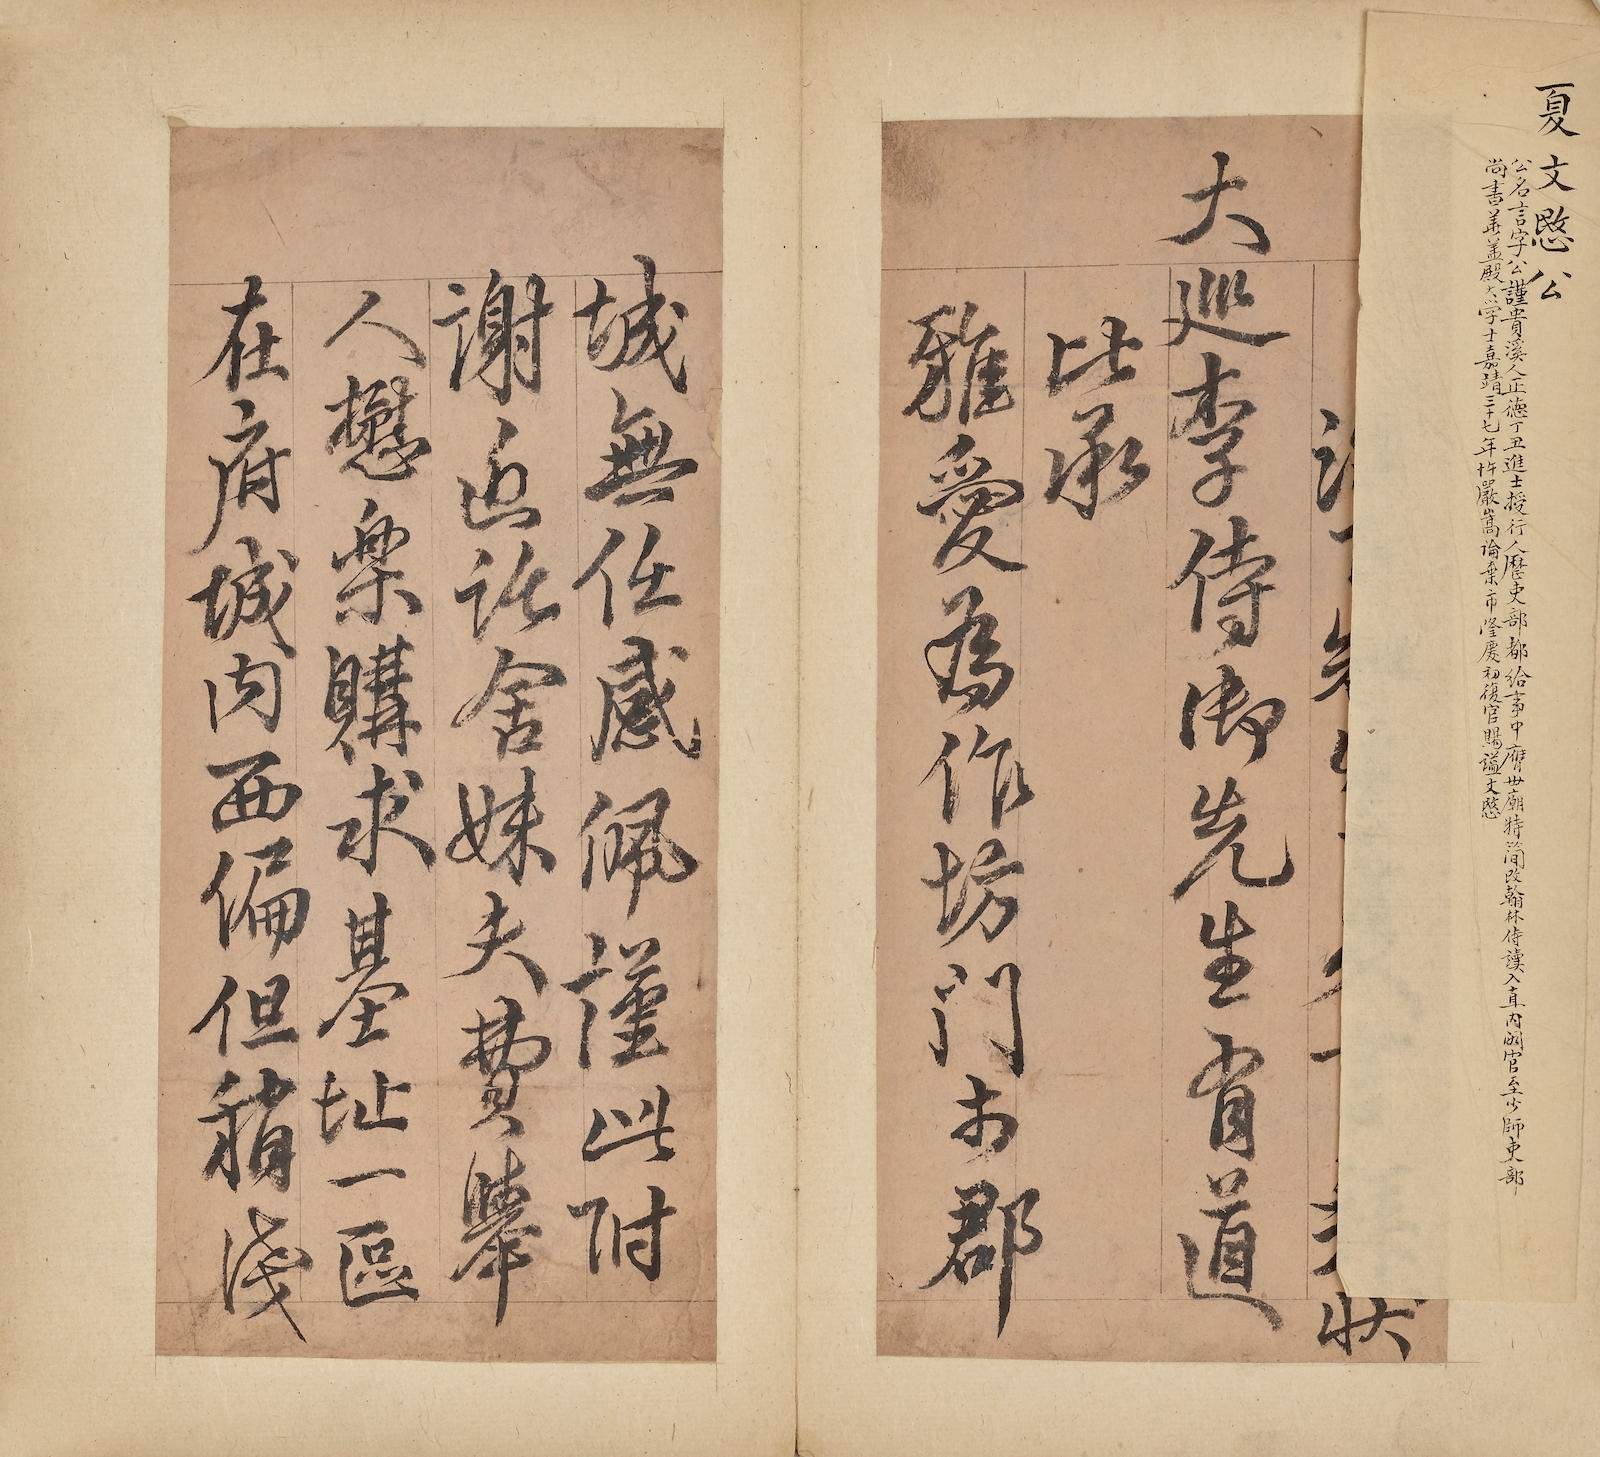 夏文愍公
公名言字公謹貴溪人正德丁丑進士授行人歷吏部都給事中膺世廟特簡改翰林侍讀入直內閣官至少師吏部
尚書華蓋殿大學士嘉靖三十七年忤嚴嵩論棄市隆慶初復官賜謚文愍
狀
大巡李侍御先生有道
比承
雅愛為作坊門於郡
城無任感佩謹此附
謝近託舍妹夫費舉
人懋樂購求基址一區
在府城內西偏但稍淺